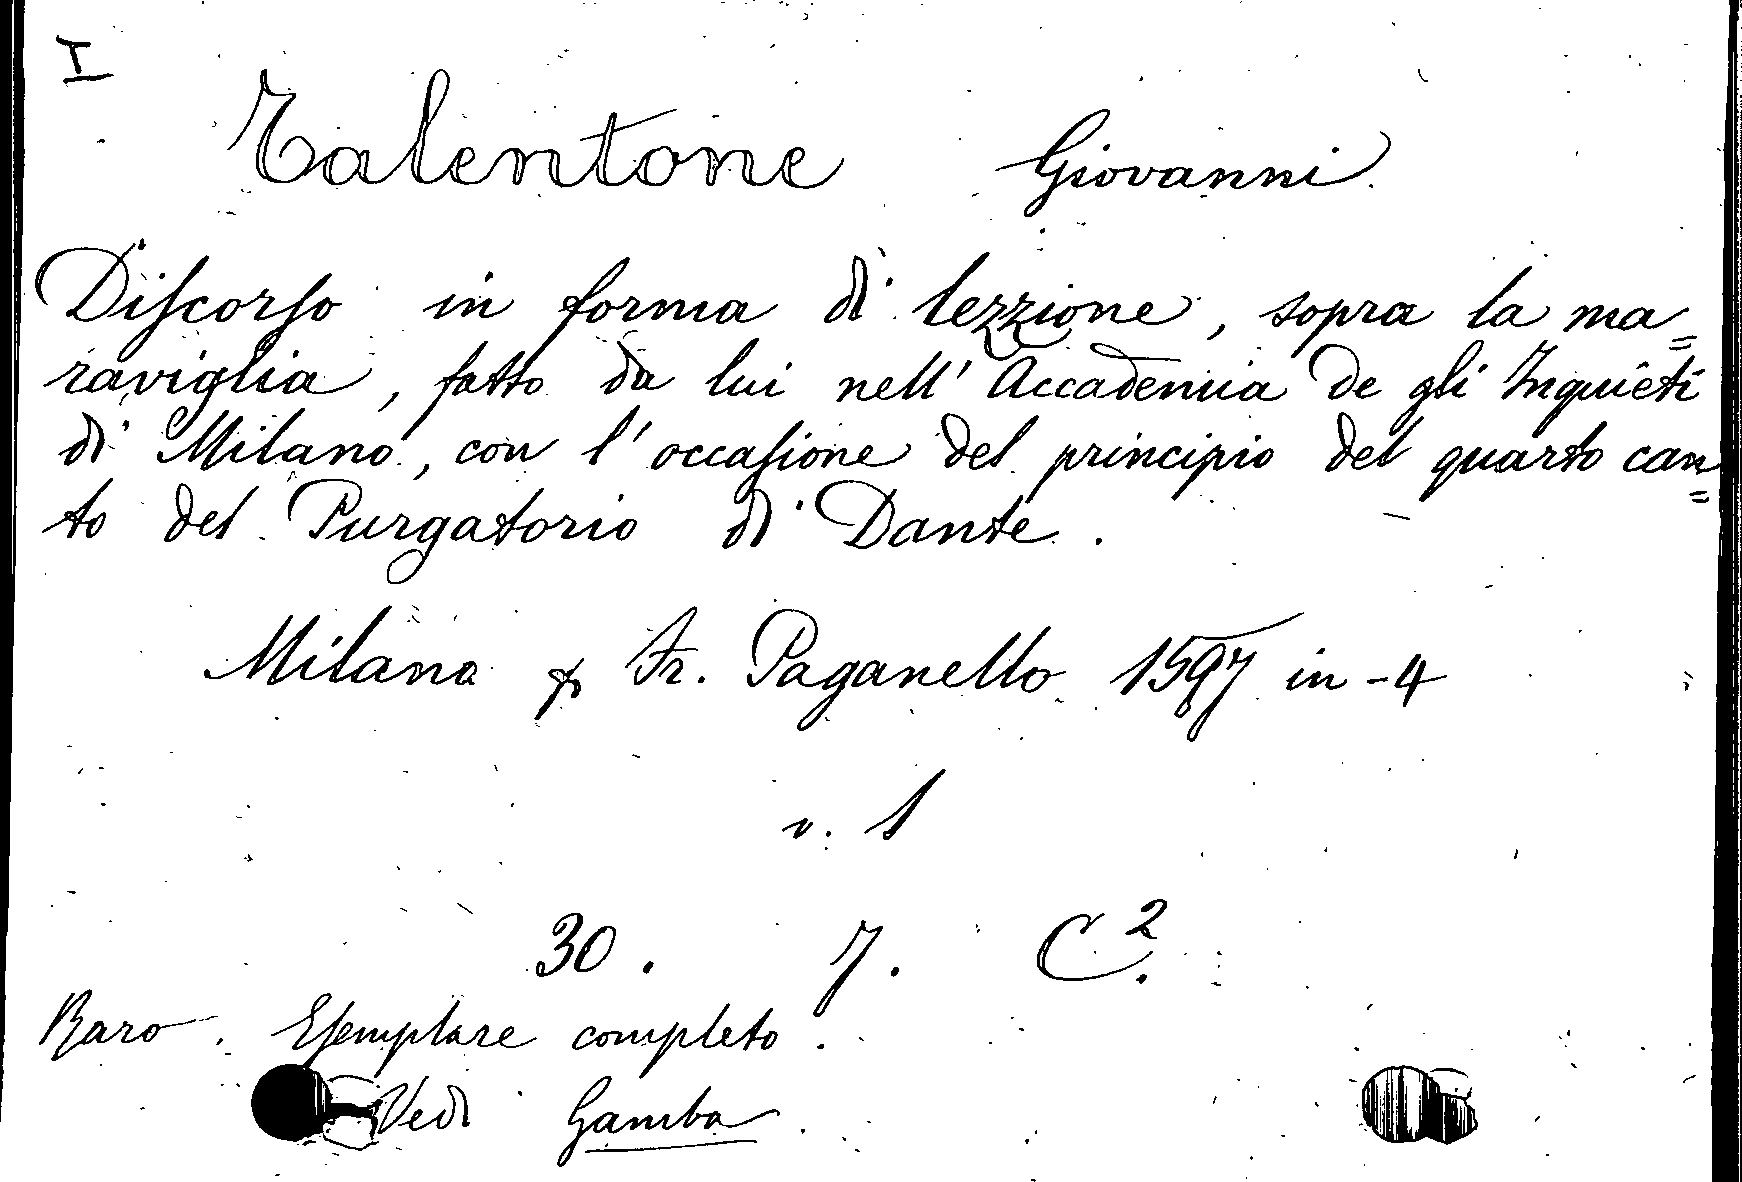 I
Talentone Giovanni.
Diſcorſo in forma di lezzione, sopra la ma=
raviglia, fatto da lui nell' Accademia de gli Inquieti
di Milano, con l' occaſione del principio del quarto can=
to del Purgatorio di Dante.
Milano p Fr. Paganello 1597 in-4
v. 1
30. 7. C².
Raro. Eſemplare completo.
Vedi Gamba.